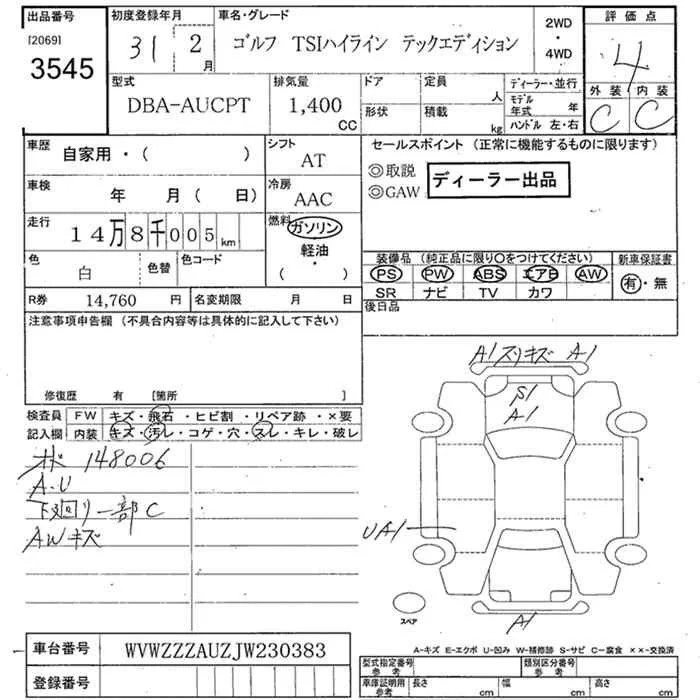 出品番号
[2069]
3545
初度登録年月
31 2月
車名・グレード
ゴルフ TSIハイライン テックエディション
2WD
・
4WD
評価点
4
外装 内装
C C
型式
DBA-AUCPT
排気量
1,400
CC
ドア
形状
定員
人
積載
kg
ディーラー・並行
モデル年式 年
ハンドル 左・右
車歴
自家用・( )
シフト
AT
車検
年 月( 日)
冷房
AAC
走行
14万8千005km
燃料
ガソリン
軽油・
( )
色
白
色替
色コード
R券 14,760 円
名変期限 月 日
セールスポイント (正常に機能するものに限ります)
◎取説
◎GAW
ディーラー出品
装備品 (純正品に限り〇をつけてください)
PS PW ABS エアB AW
SR ナビ TV カワ
新車保証書
有・無
後日品
注意事項申告欄 (不具合内容等は具体的に記入して下さい)
修復歴 有 [箇所 ]
検査員記入欄
FW キズ・飛石・ヒビ割・リペア跡・×要
内装 キズ・汚レ・コゲ・穴・スレ・キレ・破レ
148006
A.U
下廻り一部C
AWキズ
A1 スリキズ A1
S1
A1
UA1
スペア
A1
A-キズ E-エクボ U-凹み W-補修跡 S-サビ C-腐食 ××-交換済
車台番号 WVWZZZAUZJW230383
登録番号
型式指定番号 参考
類別区分番号 参考
車庫証明用 参考
長さ cm 幅 cm 高さ cm